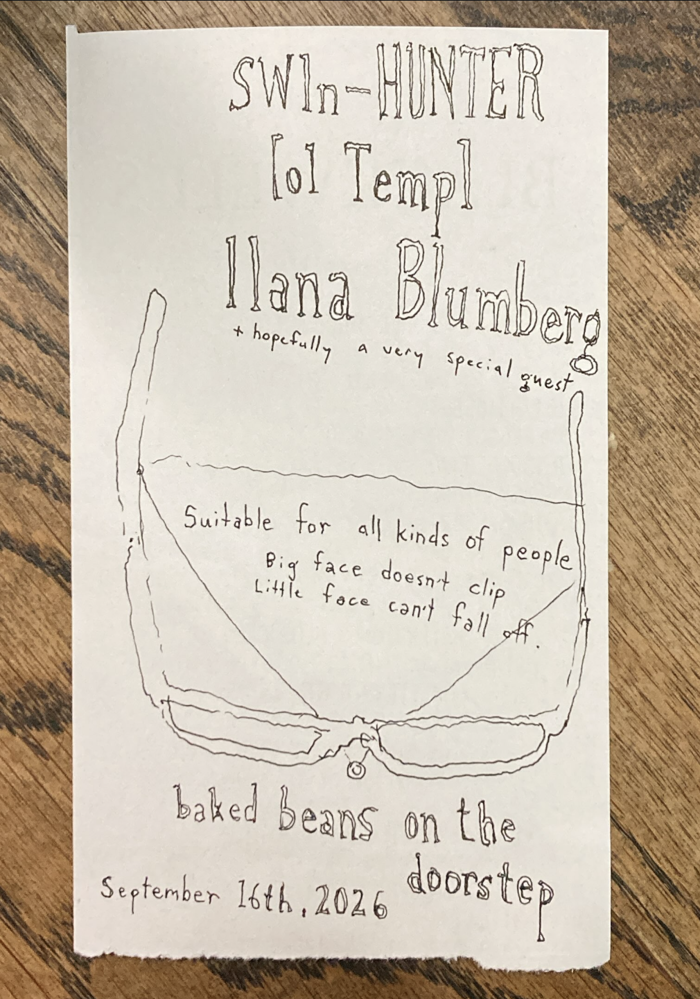 SWIn-HUNTER
[ol Temp]
Ilana Blumberg
+ hopefully a very special guest
Suitable for all kinds of people
Big face doesn't clip
Little face can't fall off.
baked beans on the
doorstep
September 16th, 2026